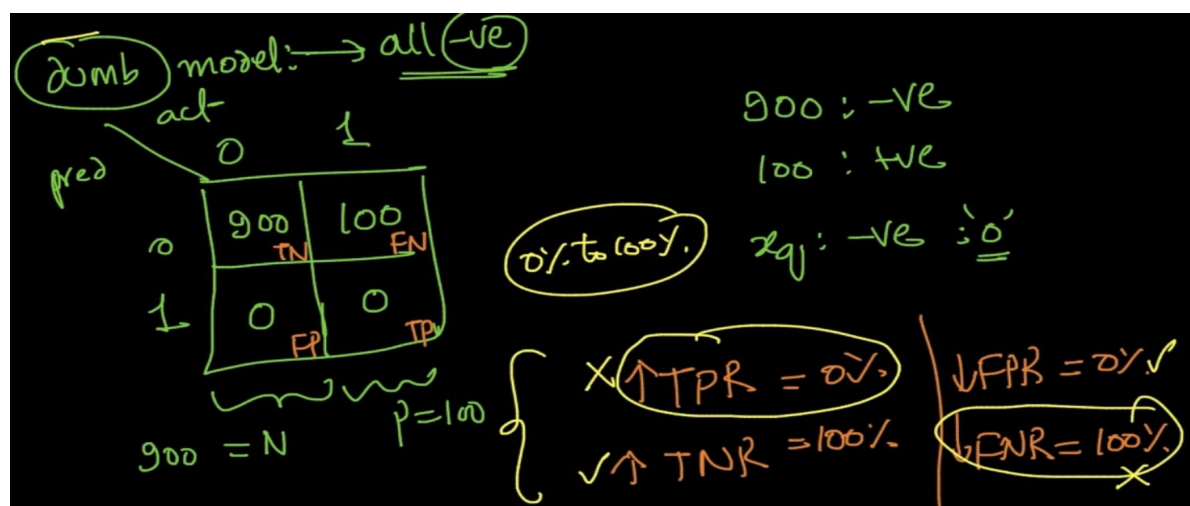 dumb model: → all -ve
act
pred
0 1
0 900 TN 100 FN
1 0 FP 0 TP
900 = N
P=100
900 : -ve
100 : +ve
0% to 100%.
xq : -ve : '0'
× ↑ TPR = 0%.
✓ ↑ TNR = 100%.
↓ FPR = 0% ✓
↓ FNR = 100%. ×